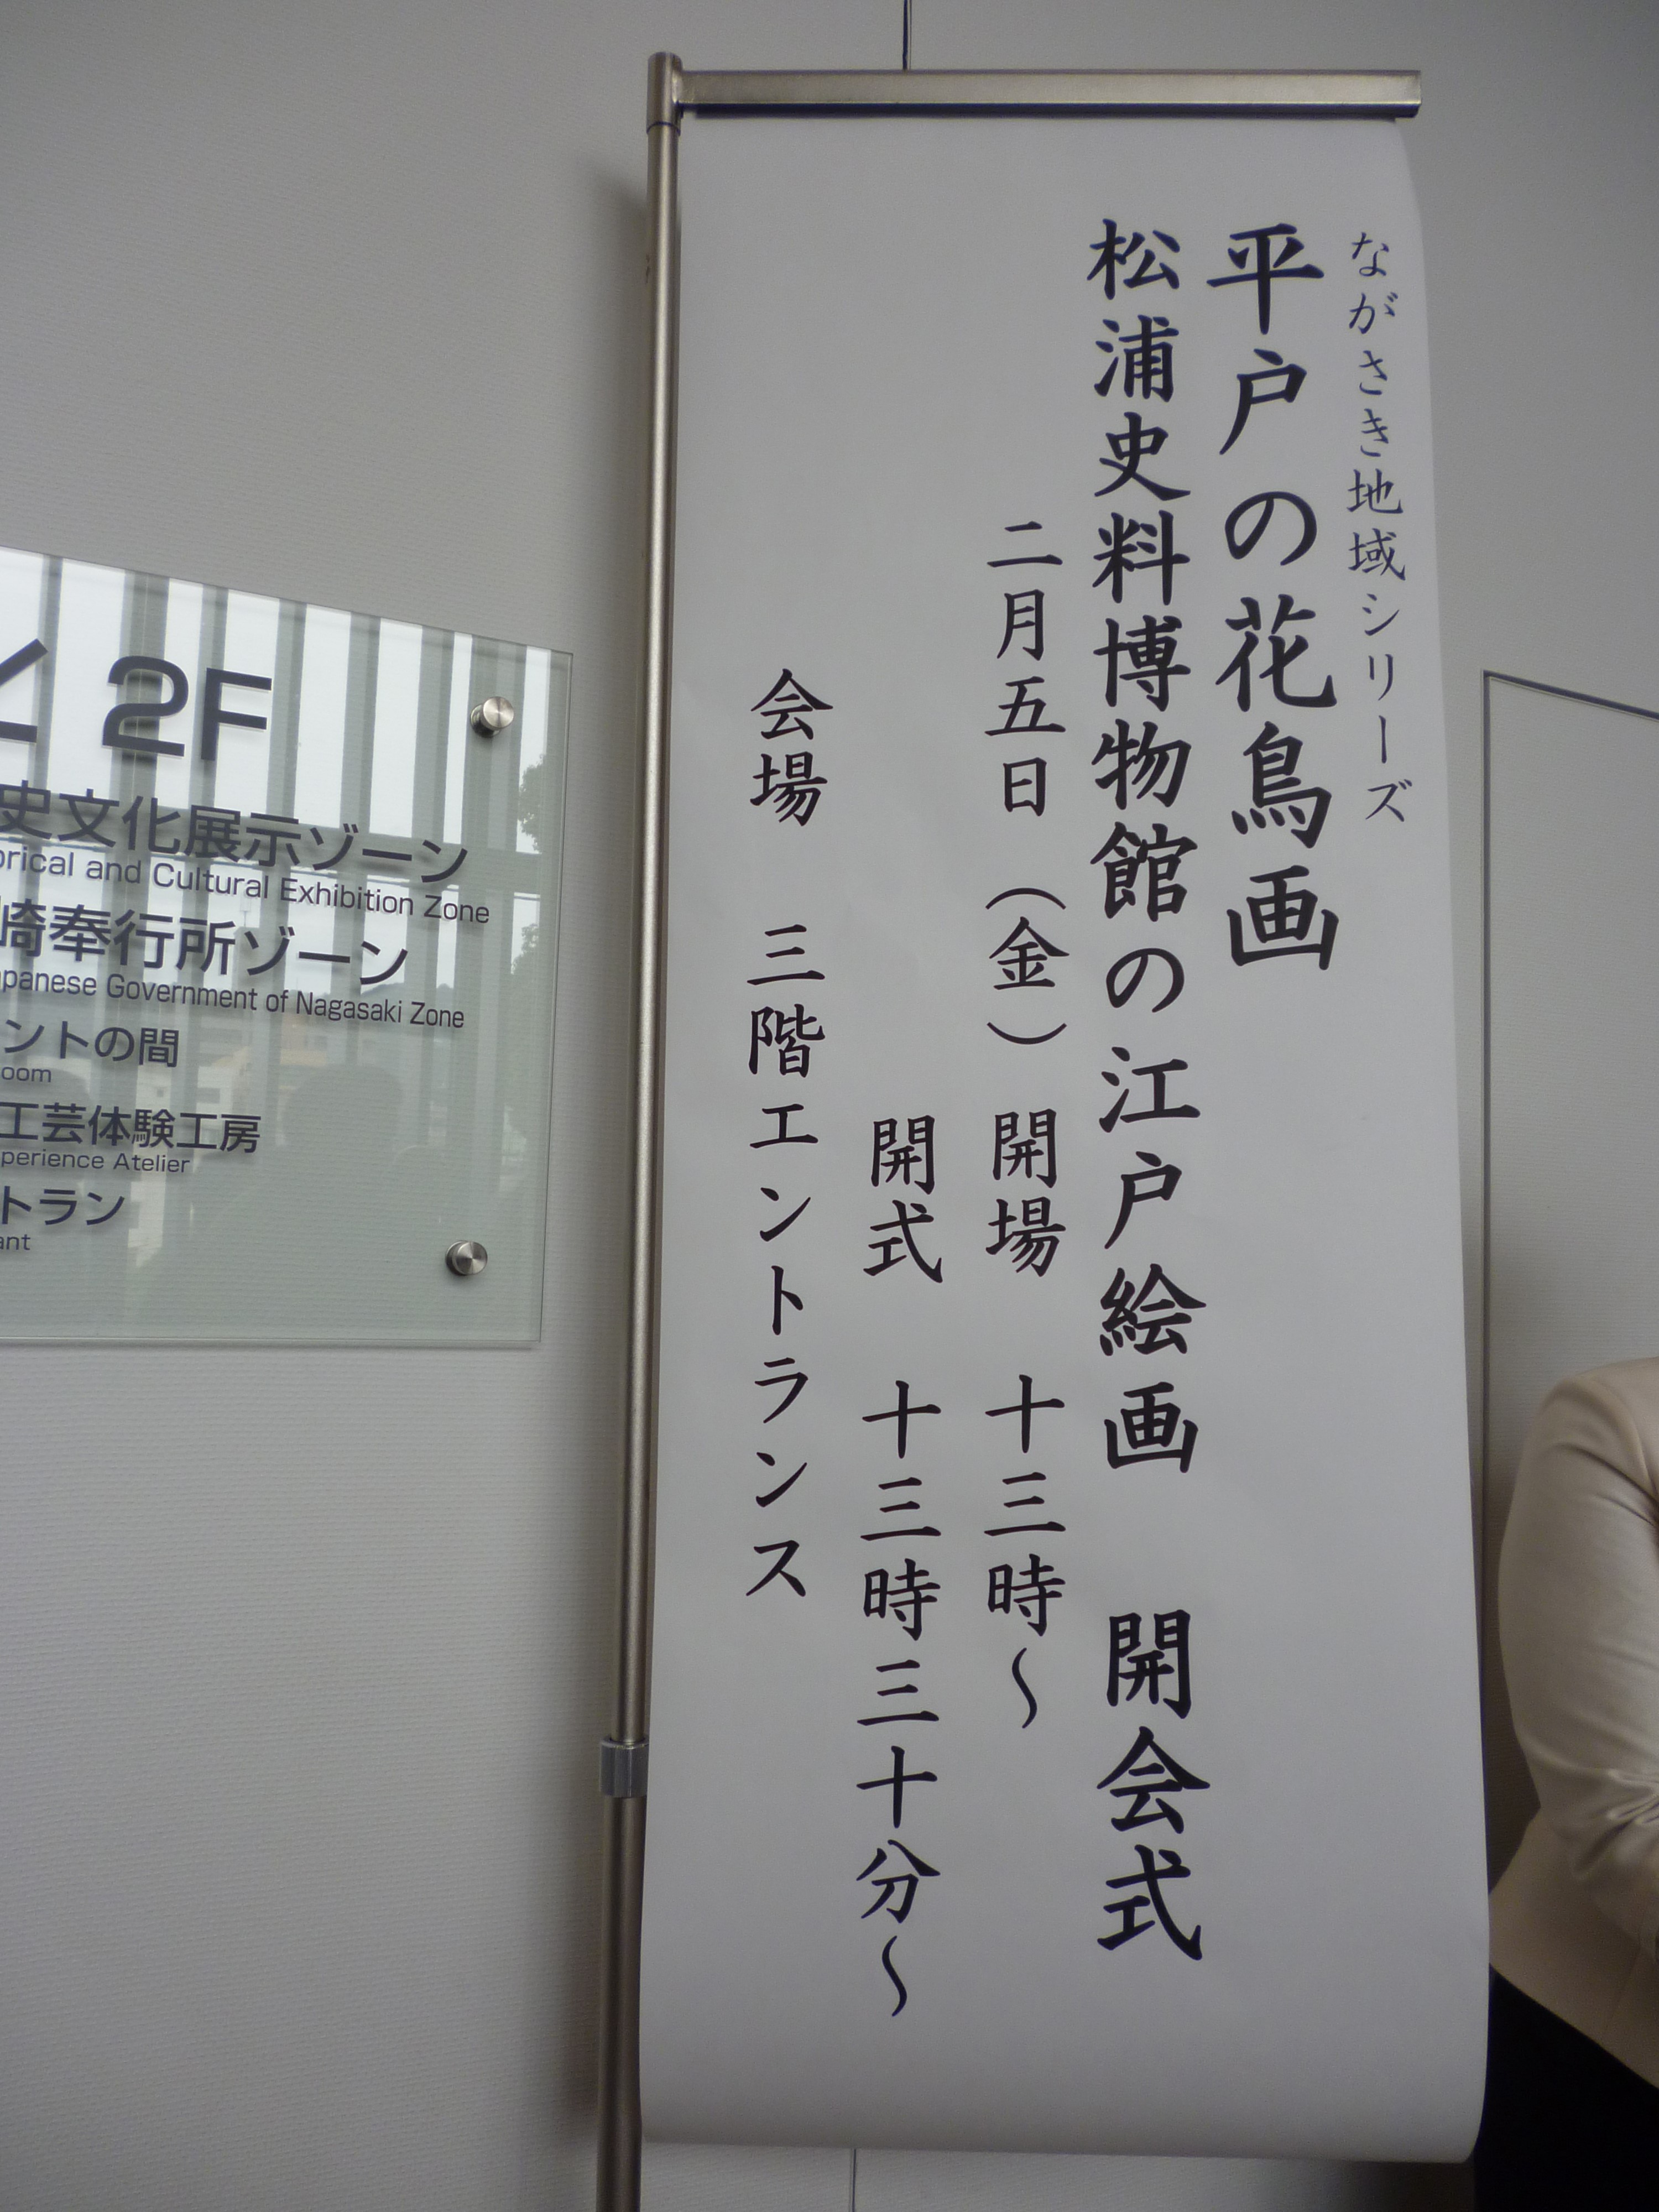 ながさき地域シリーズ
平戸の花鳥画
松浦史料博物館の江戸絵画 開会式
二月五日（金） 開場 十三時〜
開式 十三時三十分〜
会場 三階エントランス
2F
史文化展示ゾーン
orical and Cultural Exhibition Zone
崎奉行所ゾーン
panese Government of Nagasaki Zone
ントの間
oom
工芸体験工房
perience Atelier
トラン
ant